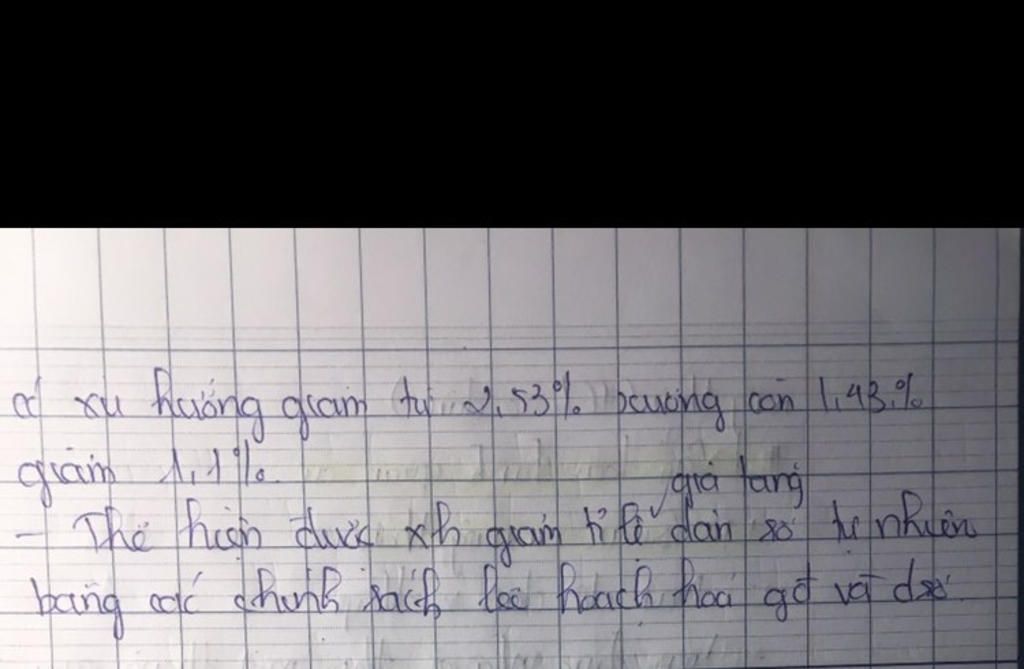 có xu hướng giảm từ 2,53% xuống còn 1,43%
giảm 1,1%.
gia tăng
- Thể hiện được xh giảm tỉ lệ ✓ dân số tự nhiên
bằng các chính sách kế hoạch hoá gđ và dsố.